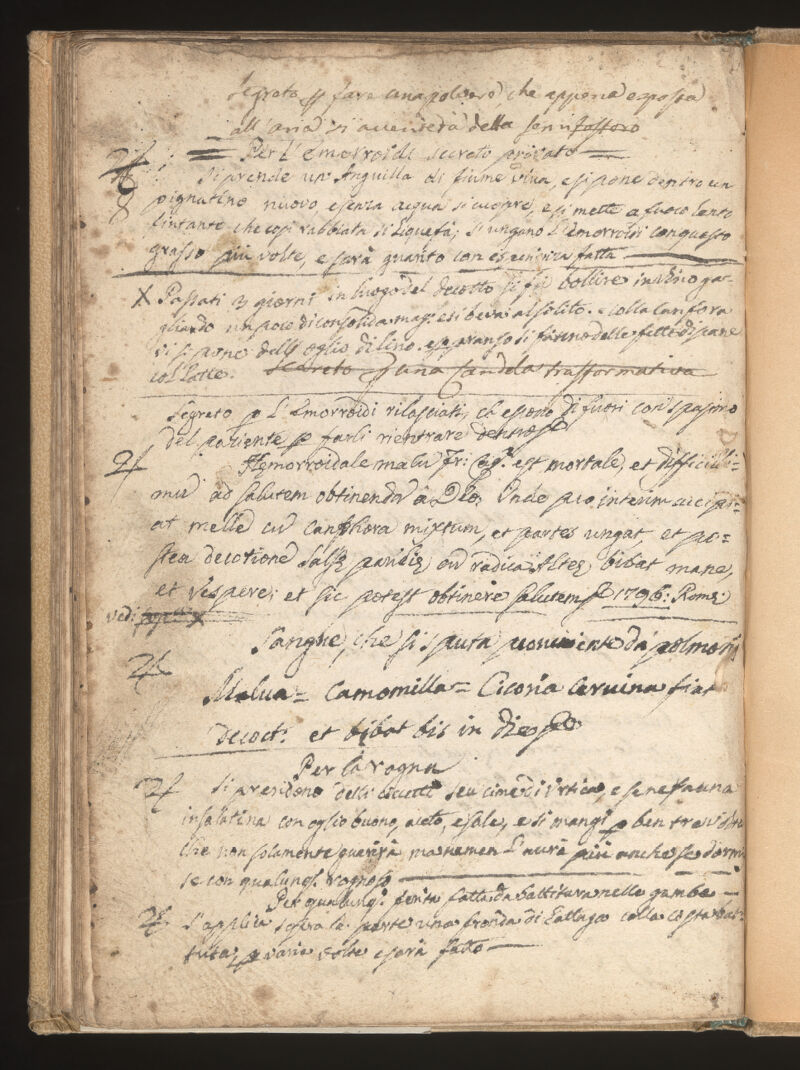 Segreto p fare una polvere, che appena esposta
all'aria si accenderà della
Per L'Emorroidi secreto provato
Si prende un'Anguilla di fiume viva, e si pone dentro un
pignatino nuovo, e senza acqua si cuopre, e si mette a fuoco lento
fintanto che così rabbiata si liquefà; si ungano l'emorroidi con questo
grasso più volte, e sarà guarito con esperienza fatta
X Passati 3 giorni in luogo del decotto si fà bollire in vino ga-
gliardo un poco di consolida mag: e si beva al solito. e colla Canfora
vi si pone dell'oglio di lino. e p pranzo si faranno delle fette di pane
col latte. Secreto p una Candela trasformativa
Segreto p L'Emorroidi rilasciati, ch'essono di fuori con spasimo
del paziente p farli rientrare dentro
Hemorroidale malu Fr: est mortale, et difficilli-
mu ad salutem obtinenda à Deo. Unde pro interim accipi-
at melle cu Canphora mixtum, et partes ungat, et po=
stea decotione Salsę paridię cu radica Alteę bibat mane,
et vespere; et sic potest obtinere salutem 1796: Romę
vedi X
Sangue, che si sputa proveniente da polmoni
Malva = Camomilla = Cicoria Cervina fiat
Decoct: et bibat bis in die
Per la rogna
Si prendono delli seu cime di Urtica, e se ne fa una
insalatina con oglio buono, aceto, e sale, e si mangi p ben tre
che non solamente guarirà, ma nemen l'aurà più anche se dormis
se con qualunq. rognoso
Per qualunq. ferita fatta da battitura nelle gambe
S'applica sopra la parte una fronda di Lattuga colla costa bat:
tuta, p varie volte e sarà fatto